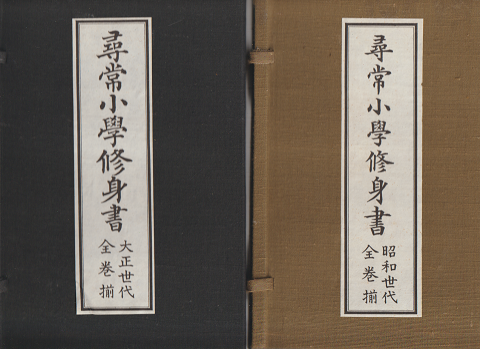 尋常小學修身書
大正世代
全巻揃
尋常小學修身書
昭和世代
全巻揃